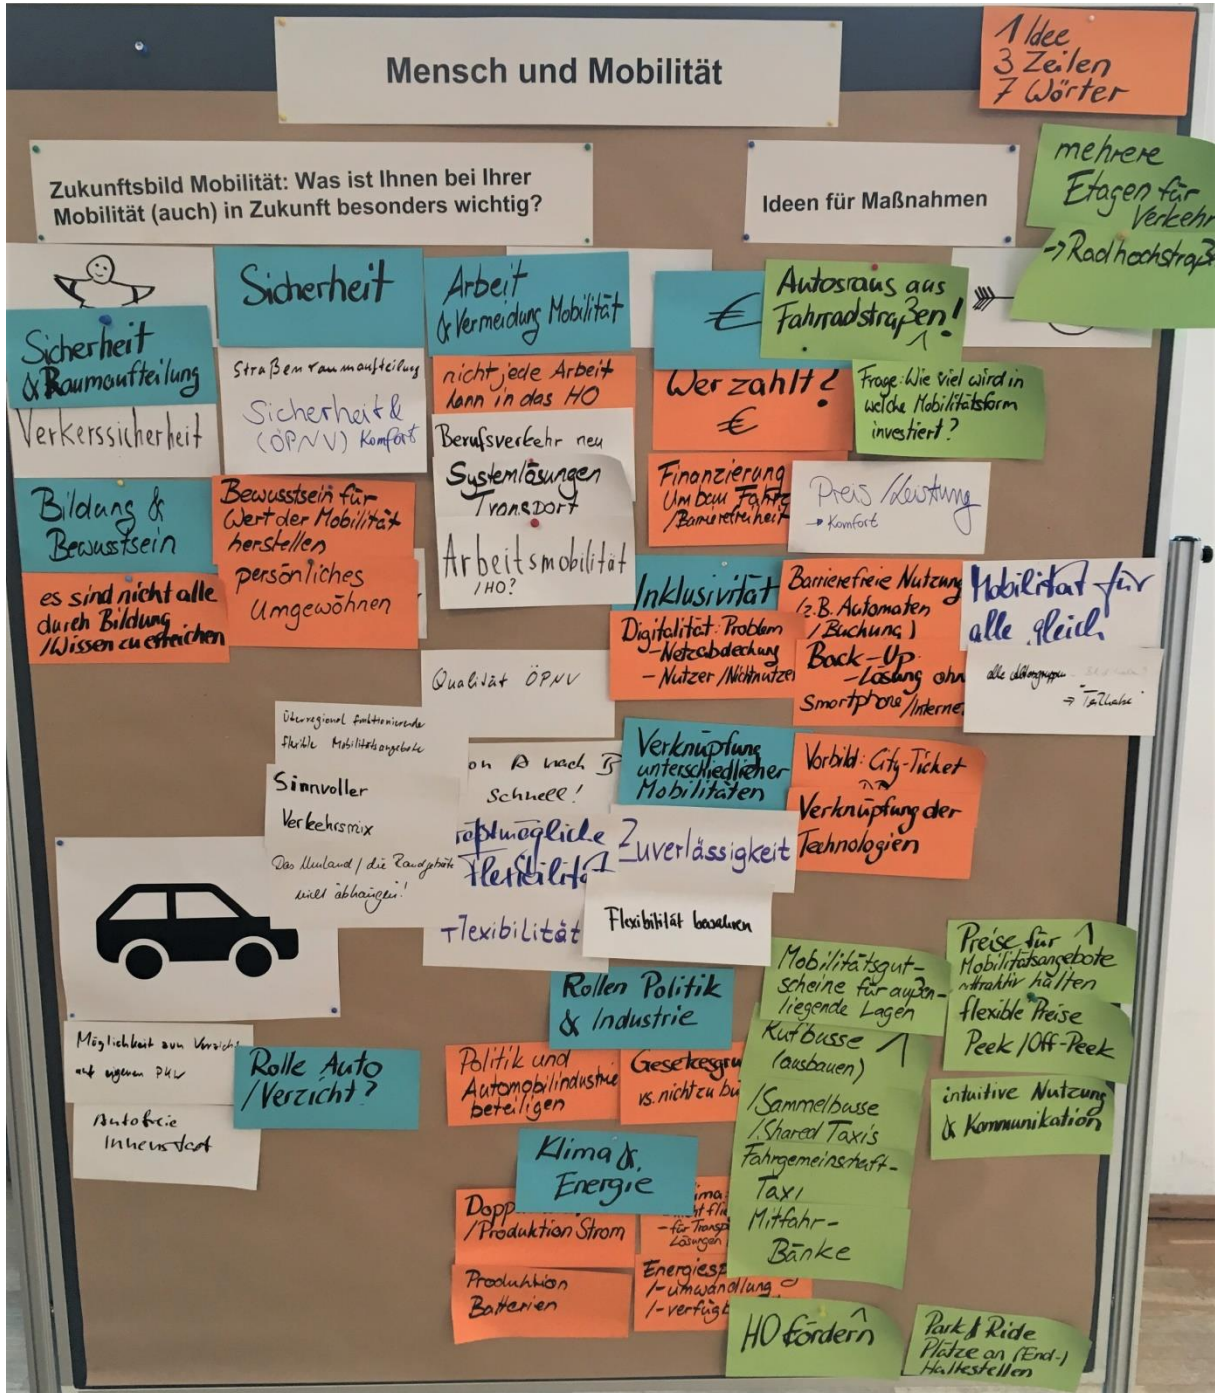 Mensch und Mobilität
1 Idee
3 Zeilen
7 Wörter
Zukunftsbild Mobilität: Was ist Ihnen bei Ihrer
Mobilität (auch) in Zukunft besonders wichtig?
Ideen für Maßnahmen
mehrere
Etagen für
Verkehr
→ Radhochstraße
Sicherheit
& Raumaufteilung
Verkerssicherheit
Sicherheit
Straßenraumaufteilung
Sicherheit &
(ÖPNV) Komfort
Arbeit
& Vermeidung Mobilität
nicht jede Arbeit
kann in das HO
Berufsverkehr neu
Systemlösungen
Transport
Arbeitsmobilität
/HO?
€
Autos raus aus
Fahrradstraßen!
Wer zahlt?
€
Frage: Wie viel wird in
welche Mobilitätsform
investiert?
Finanzierung
Umbau
/Barrierefreiheit
Preis/Leistung
→ Komfort
Bildung &
Bewusstsein
es sind nicht alle
durch Bildung
/Wissen zu erreichen
Bewusstsein für
Wert der Mobilität
herstellen
persönliches
Umgewöhnen
Inklusivität
Digitalität: Problem
- Netzabdeckung
- Nutzer/Nichtnutzer
Barrierefreie Nutzung
(z.B. Automaten
/Buchung)
Back-Up
- Lösung ohn
Smartphone/Interne
Mobilität für
alle gleich
alle
⇒ "Teilhabe"
Qualität ÖPNV
Überregional funktionierende
flexible Mobilitätsangebote
Sinnvoller
Verkehrsmix
Das Umland/die Randgebiete
nicht abhängen!
on A nach B
schnell!
Flexibilität
Flexibilität
Verknüpfung
unterschiedlicher
Mobilitäten
Zuverlässigkeit
Flexibilität bewahren
Vorbild: City-Ticket
Verknüpfung der
Technologien
Möglichkeit zum Verzicht
auf eigenen PKW
Autofreie
Innenstadt
Rolle Auto
/Verzicht?
Rollen Politik
& Industrie
Politik und
Automobilindustrie
beteiligen
vs. nicht zu
Klima &
Energie
/Produktion Strom
Produktion
Batterien
- für
Lösungen
/-umwandlung
Mobilitätsgut-
scheine für außen-
liegende Lagen
Rufbusse
(ausbauen)
/Sammelbusse
/Shared Taxis
Fahrgemeinschaft-
Taxi
Mitfahr-
Bänke
HO fördern
Preise für
Mobilitätsangebote
attraktiv halten
flexible Preise
Peek/Off-Peek
intuitive Nutzung
& Kommunikation
Park & Ride
Plätze an (End-)
Haltestellen